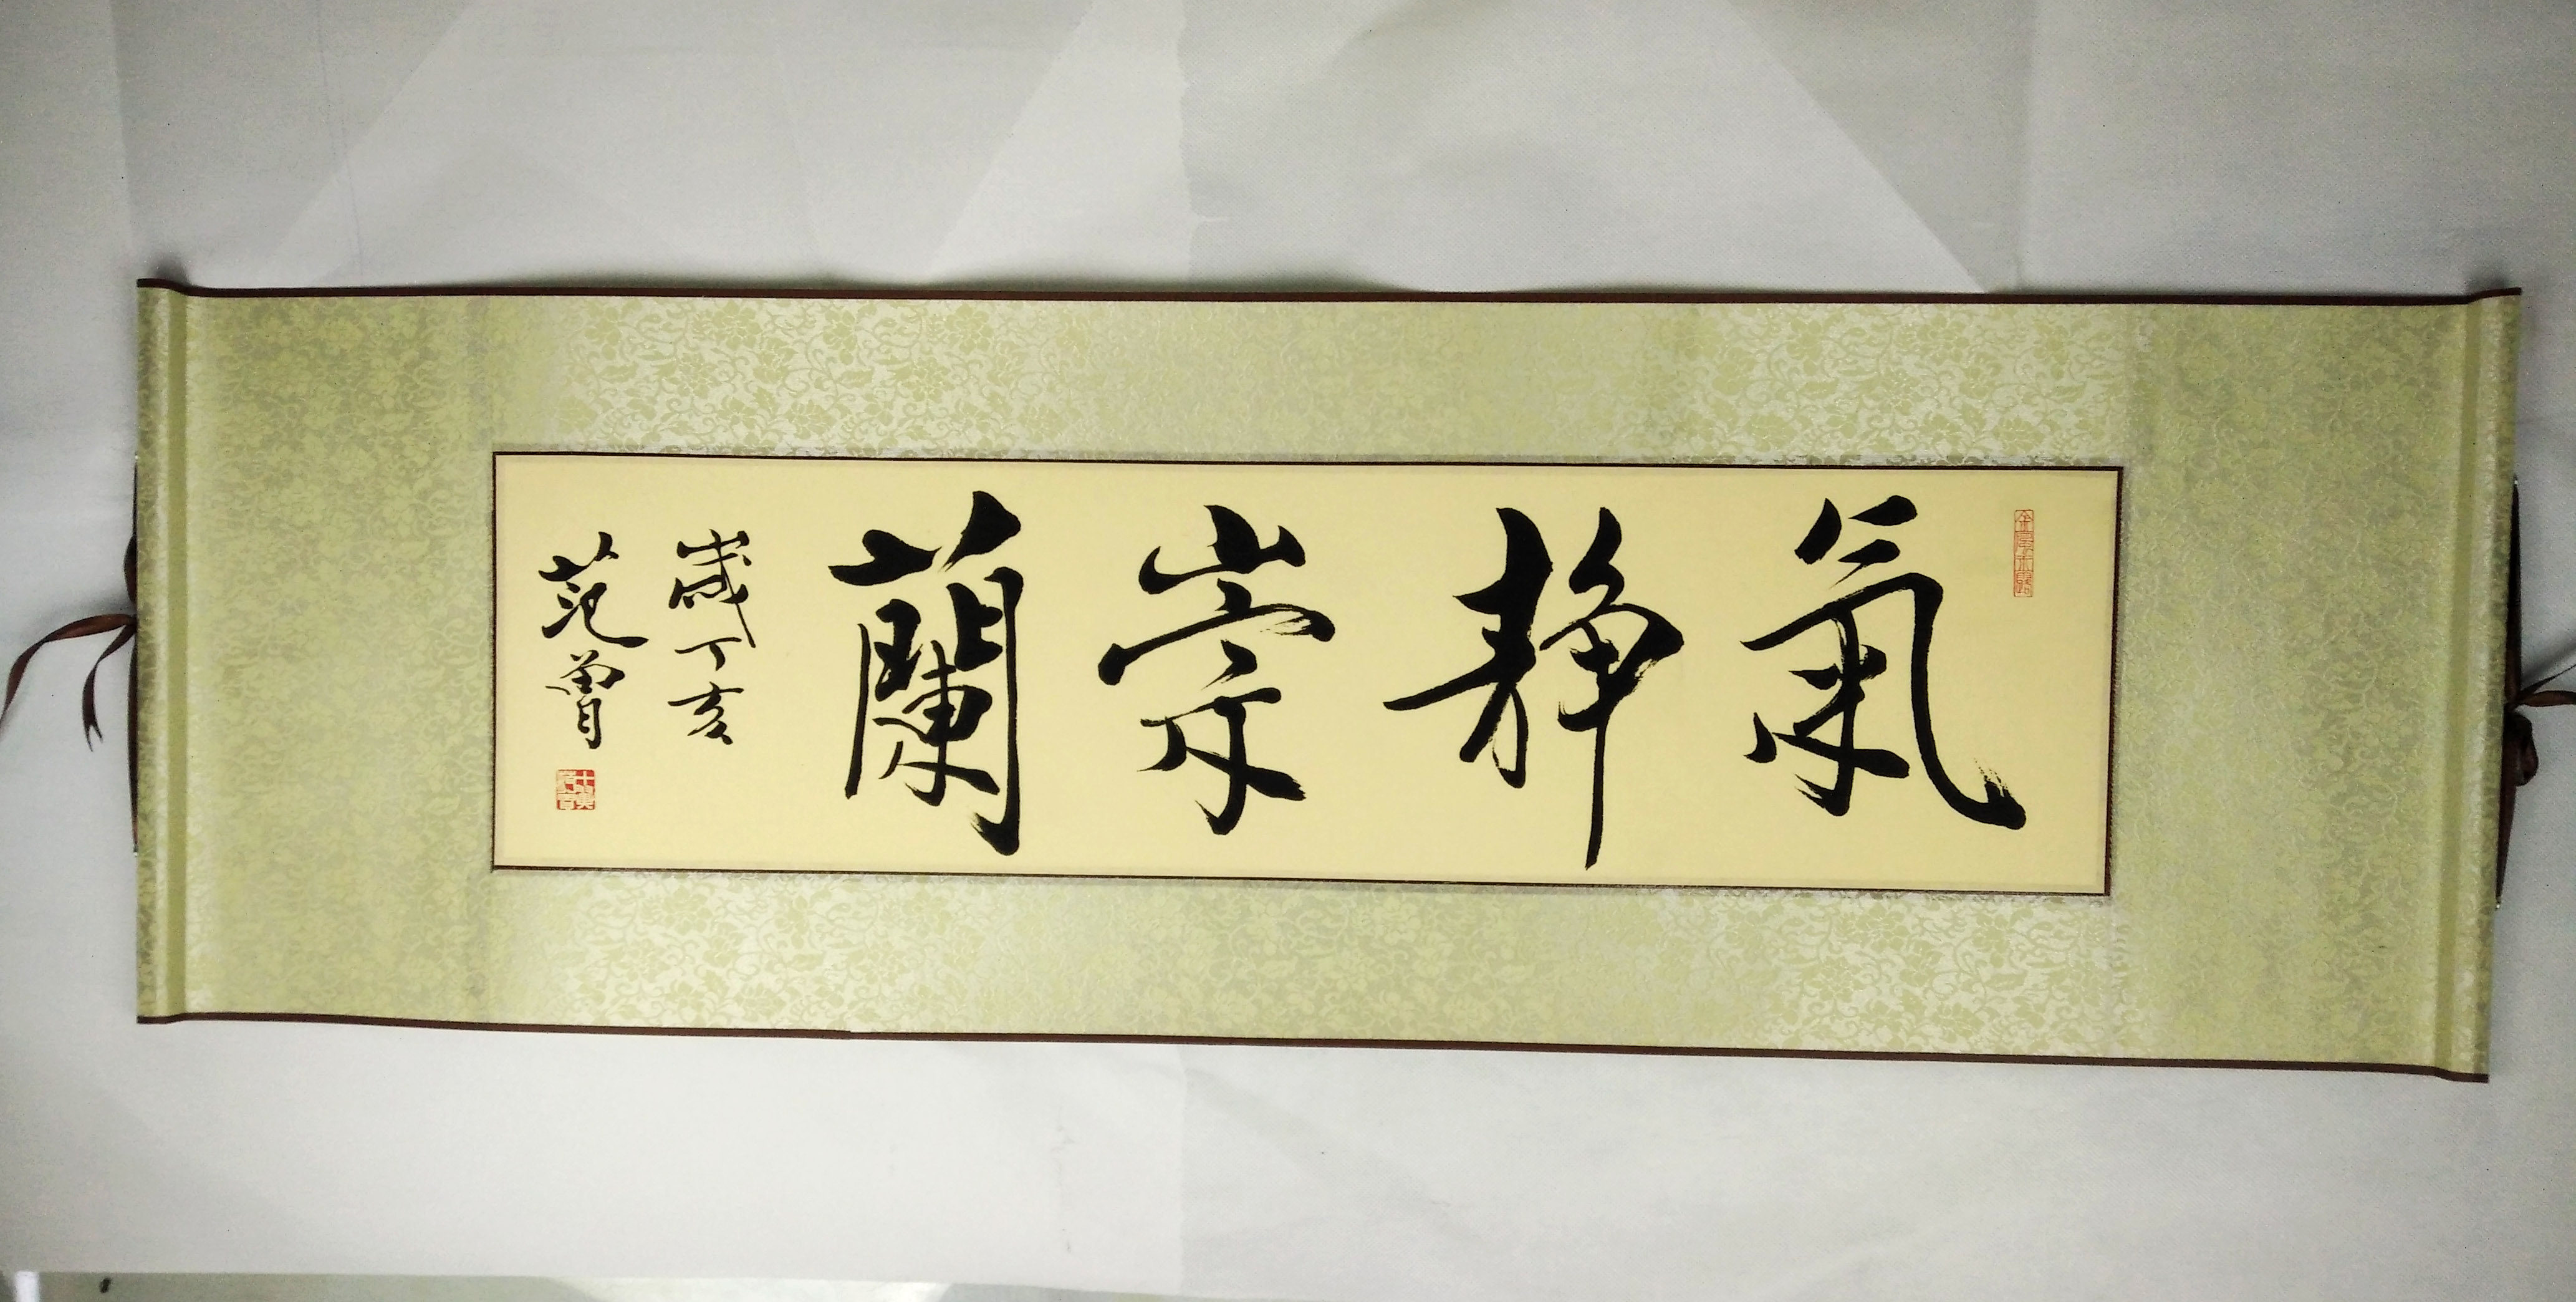 氣静崇蘭
歲丁亥
范曾